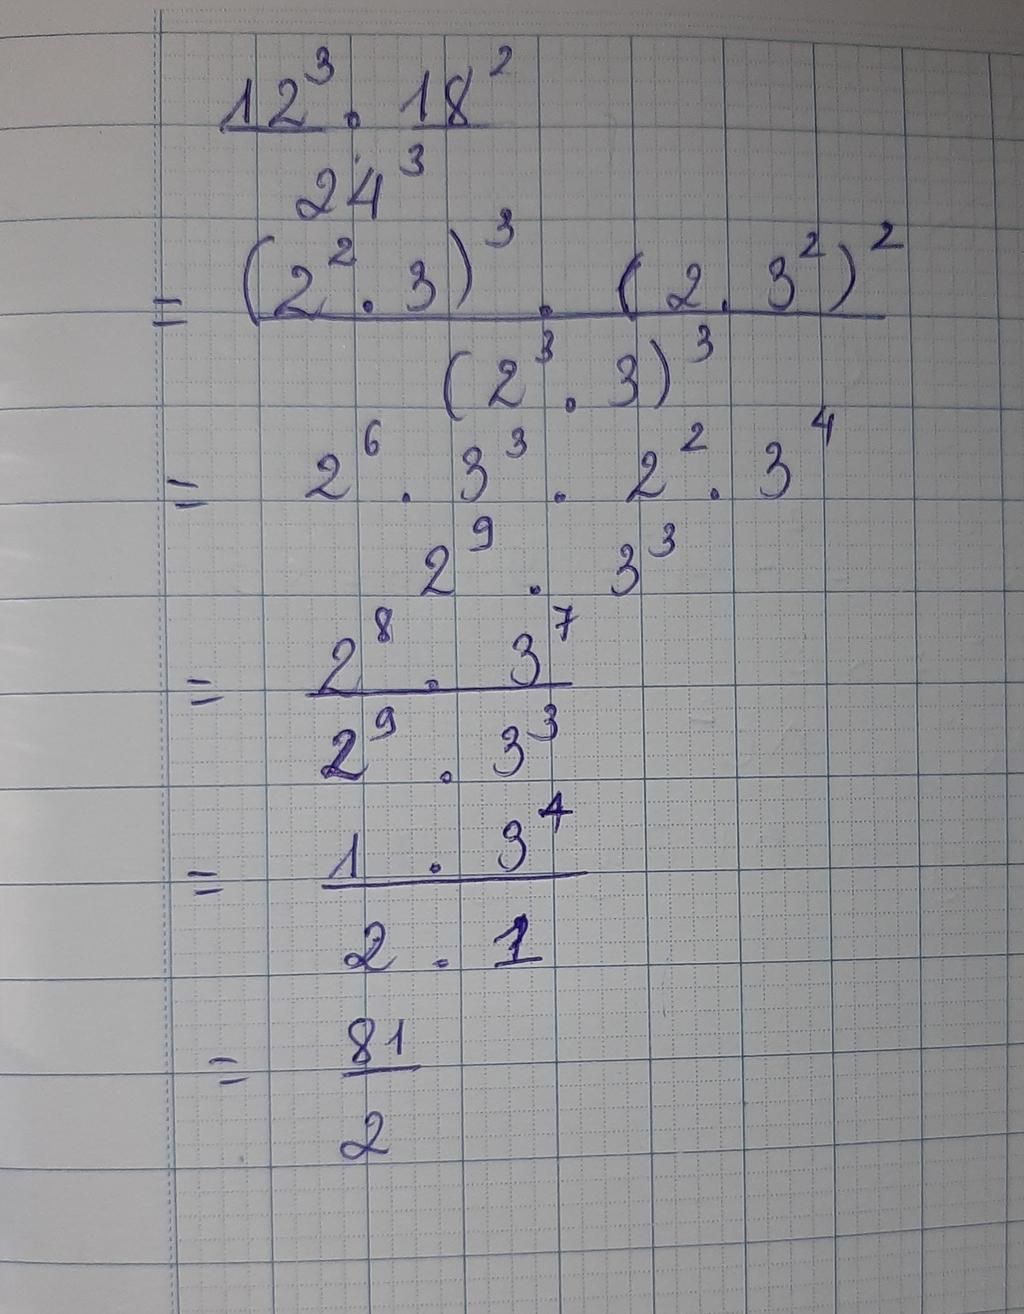 12³ . 18²
24³
= (2² . 3)³ . (2 . 3²)²
(2³ . 3)³
= 2⁶ . 3³ . 2² . 3⁴
2⁹ . 3³
= 2⁸ . 3⁷
2⁹ . 3³
= 1 . 3⁴
2 . 1
= 81
2